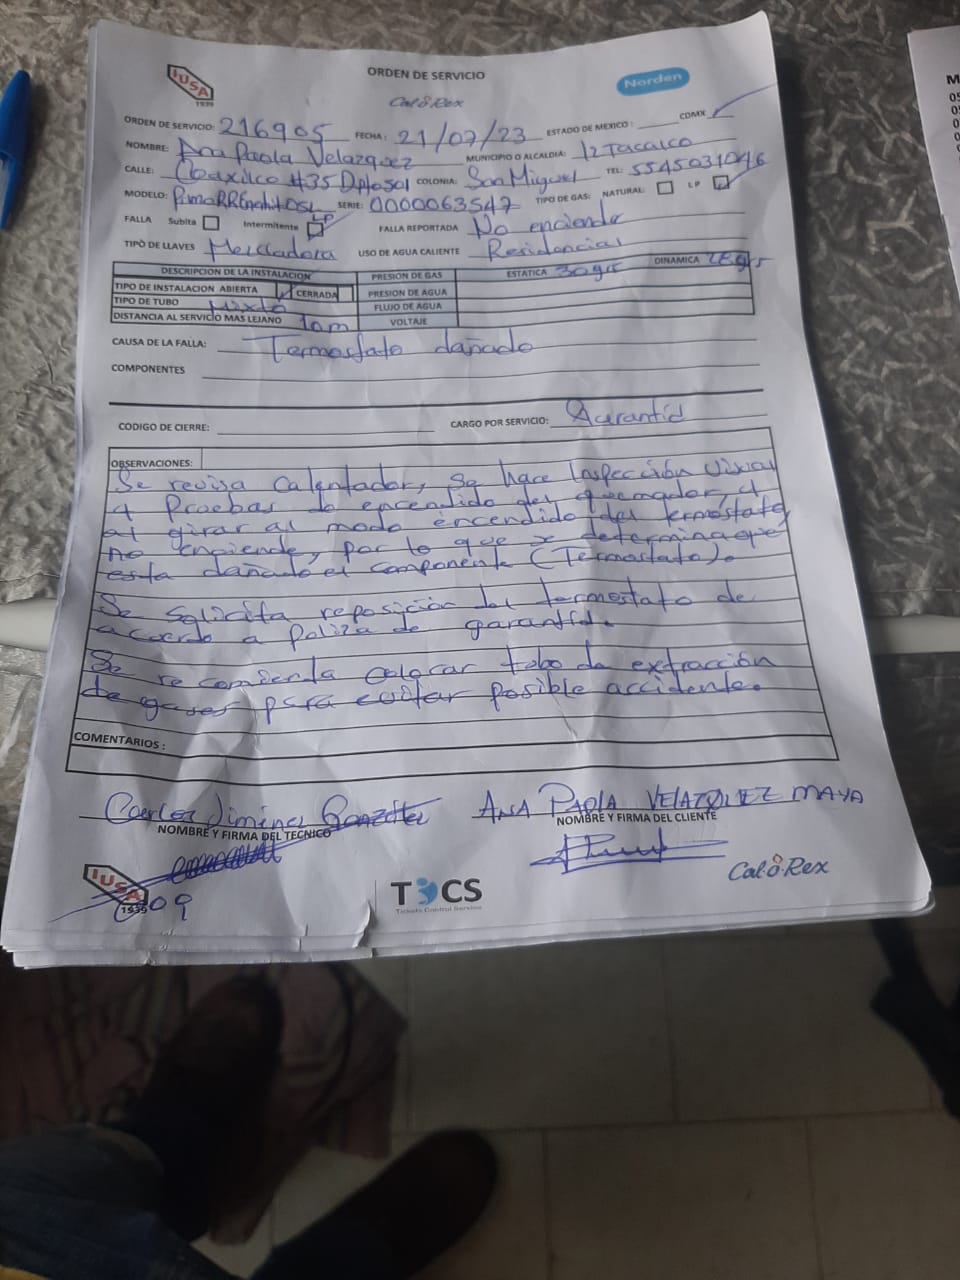 IUSA
1939
ORDEN DE SERVICIO
Cal-o-Rex
Norden
ORDEN DE SERVICIO: 216905 FECHA: 21/07/23 ESTADO DE MEXICO: CDMX
NOMBRE: Ana Paola Velazquez MUNICIPIO O ALCALDIA: Iztacalco
CALLE: #35 COLONIA: San Miguel TEL: 5545031046
MODELO: SERIE: 0000063547 TIPO DE GAS: NATURAL: LP
FALLA Subita Intermitente LP FALLA REPORTADA No enciende
TIPO DE LLAVES Mezcladora USO DE AGUA CALIENTE Residencial
DESCRIPCION DE LA INSTALACION PRESION DE GAS ESTATICA 30grs DINAMICA 28grs
TIPO DE INSTALACION ABIERTA CERRADA PRESION DE AGUA
TIPO DE TUBO Mixto FLUJO DE AGUA
DISTANCIA AL SERVICIO MAS LEJANO 10m VOLTAJE
CAUSA DE LA FALLA: Termostato dañado
COMPONENTES
CODIGO DE CIERRE: CARGO POR SERVICIO: Garantid
OBSERVACIONES:
Se revisa calentador, se hace Inspección visual
y Pruebas de encendido del quemador,
al girar al modo encendido del termostato
no enciende, por lo que se determina que
esta dañado el componente (Termostato).
Se solicita reposición del termostato de
acuerdo a poliza de garantid.
Se recomienda colocar tubo de extracción
de gases para evitar posible accidente.
COMENTARIOS:
Carlos Jiminez González ANA PAOLA VELAZQUEZ MAYA
NOMBRE Y FIRMA DEL TECNICO NOMBRE Y FIRMA DEL CLIENTE
IUSA
1939
TCS
Tickets Control Service
Cal-o-Rex